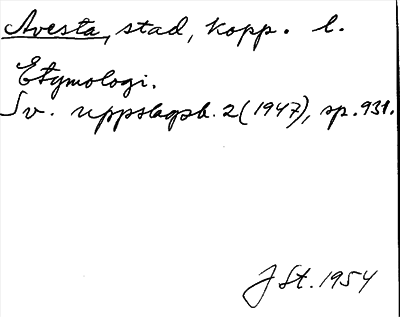 Avesta, stad, Kopp. l.
Etymologi.
Sv. uppslagsb. 2 (1947), sp. 931.
J St. 1954